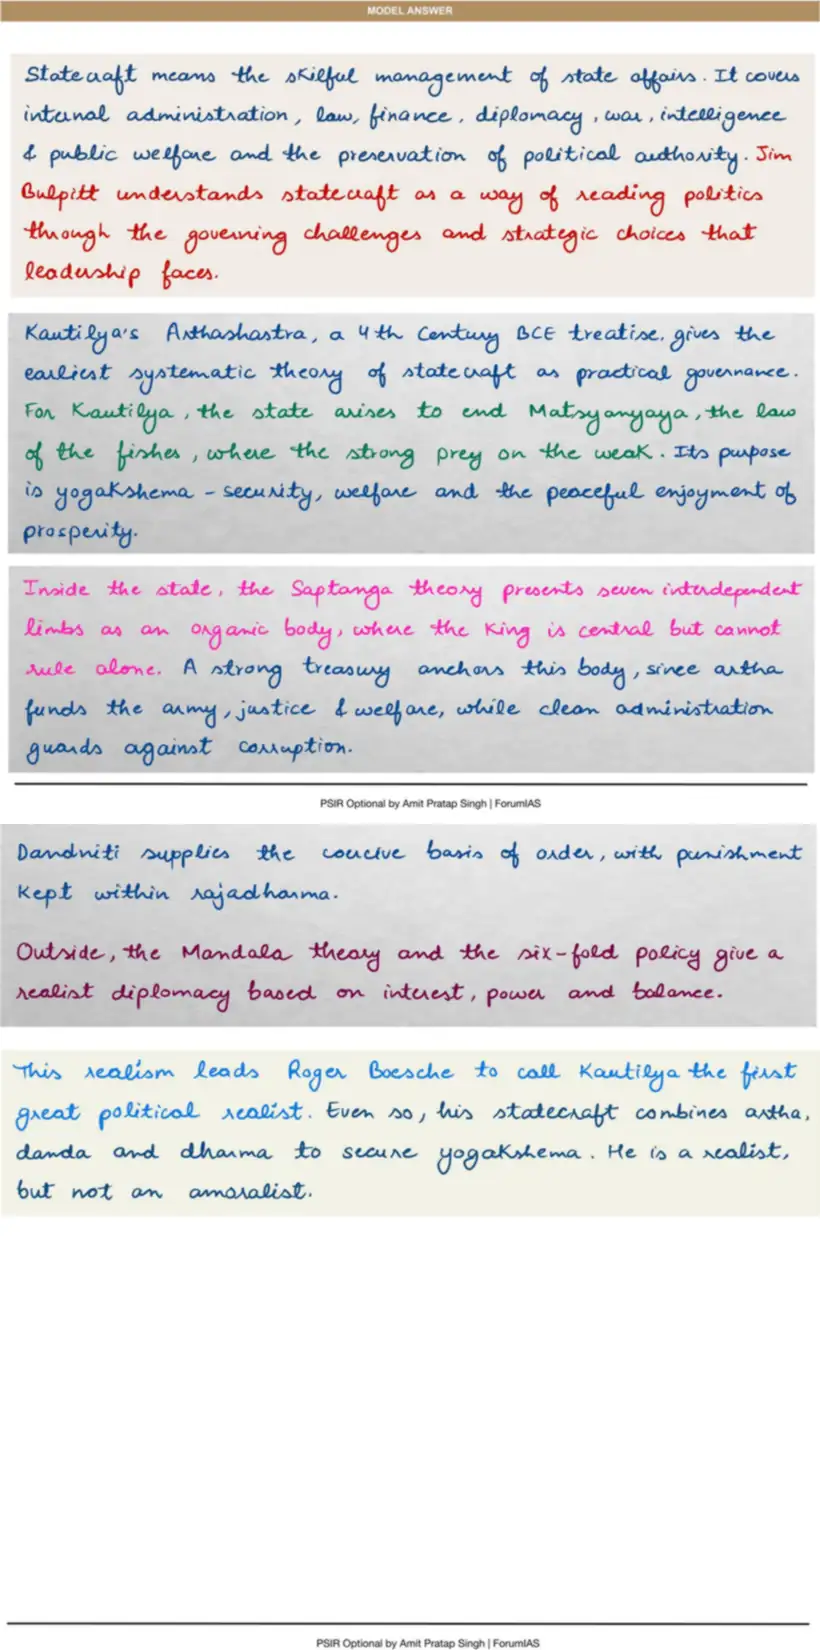 MODEL ANSWER
Statecraft means the skilful management of state affairs. It covers
internal administration, law, finance, diplomacy, war, intelligence
& public welfare and the preservation of political authority. Jim
Bulpitt understands statecraft as a way of reading politics
through the governing challenges and strategic choices that
leadership faces.
Kautilya's Arthashastra, a 4th Century BCE treatise, gives the
earliest systematic theory of statecraft as practical governance.
For Kautilya, the state arises to end Matsyanyaya, the law
of the fishes, where the strong prey on the weak. Its purpose
is yogakshema - security, welfare and the peaceful enjoyment of
prosperity.
Inside the state, the Saptanga theory presents seven interdependent
limbs as an organic body, where the King is central but cannot
rule alone. A strong treasury anchors this body, since artha
funds the army, justice & welfare, while clean administration
guards against corruption.
PSIR Optional by Amit Pratap Singh | ForumIAS
Dandniti supplies the coercive basis of order, with punishment
kept within rajadharma.
Outside, the Mandala theory and the six-fold policy give a
realist diplomacy based on interest, power and balance.
This realism leads Roger Boesche to call Kautilya the first
great political realist. Even so, his statecraft combines artha,
danda and dharma to secure yogakshema. He is a realist,
but not an amoralist.
PSIR Optional by Amit Pratap Singh | ForumIAS